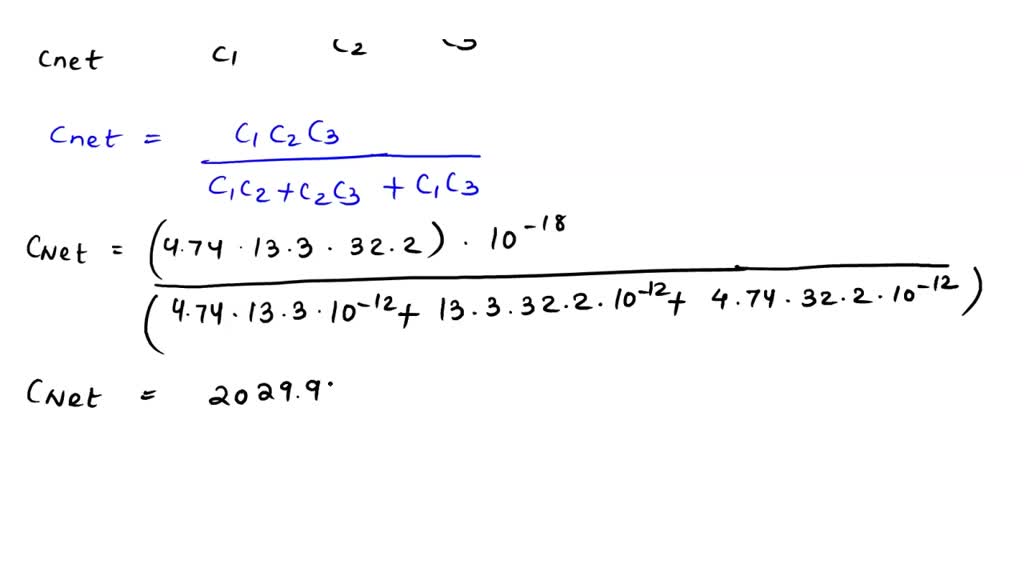 Cnet C1 C2
Cnet = C1 C2 C3
C1C2 + C2C3 + C1C3
CNet = (4.74 · 13.3 · 32.2) · 10^-18
(4.74 · 13.3 · 10^-12 + 13.3 · 32.2 · 10^-12 + 4.74 · 32.2 · 10^-12)
CNet = 2029.9